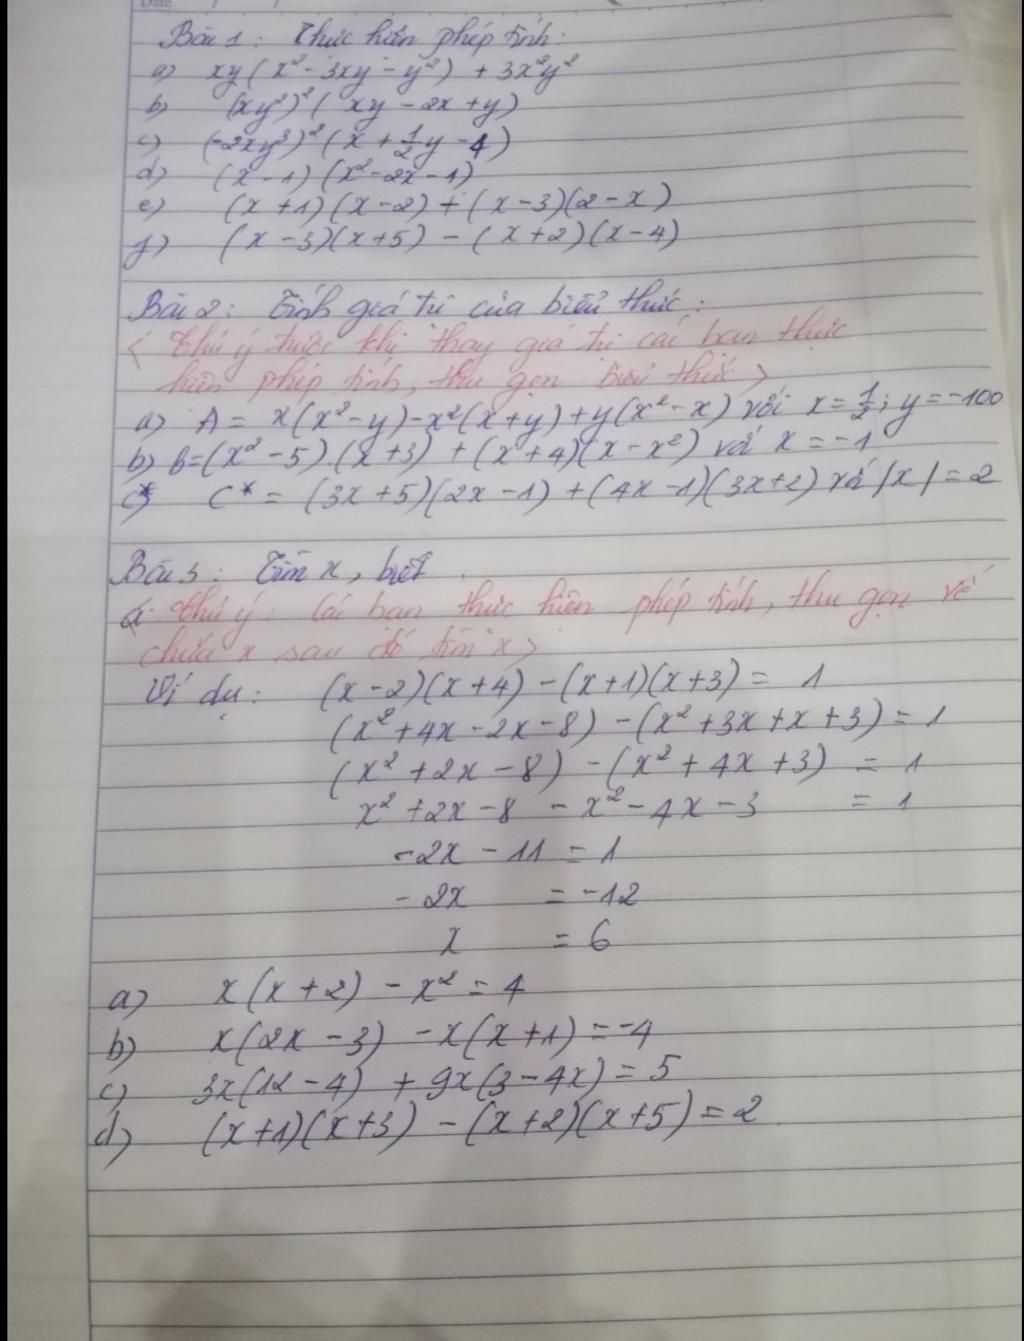 Date
Bài 1: Thực hiện phép tính:
a) xy(x² - 3xy - y²) + 3x²y²
b) (xy²)²(xy - 2x + y)
c) (-2xy³)²(x + 1/2y - 4)
d) (x - 1)(x² - 2x - 1)
e) (x + 1)(x - 2) + (x - 3)(2 - x)
f) (x - 3)(x + 5) - (x + 2)(x - 4)
Bài 2: Tính giá trị của biểu thức:
< Chú ý trước khi thay giá trị các bạn thực
hiện phép tính, thu gọn biểu thức >
a) A = x(x² - y) - x²(x + y) + y(x² - x) với x = 1/2; y = -100
b) B = (x² - 5).(x + 3) + (x + 4)(x - x²) với x = -1
c*) C* = (3x + 5)(2x - 1) + (4x - 1)(3x + 2) với |x| = 2
Bài 3: Tìm x, biết
< Chú ý: Các bạn thực hiện phép tính, thu gọn vế
chứa x sau đó tìm x >
Ví dụ: (x - 2)(x + 4) - (x + 1)(x + 3) = 1
(x² + 4x - 2x - 8) - (x² + 3x + x + 3) = 1
(x² + 2x - 8) - (x² + 4x + 3) = 1
x² + 2x - 8 - x² - 4x - 3 = 1
-2x - 11 = 1
-2x = -12
x = 6
a) x(x + 2) - x² = 4
b) x(2x - 3) - x(x + 1) = -4
c) 3x(12 - 4) + 9x(3 - 4x) = 5
d) (x + 1)(x + 3) - (x + 2)(x + 5) = 2